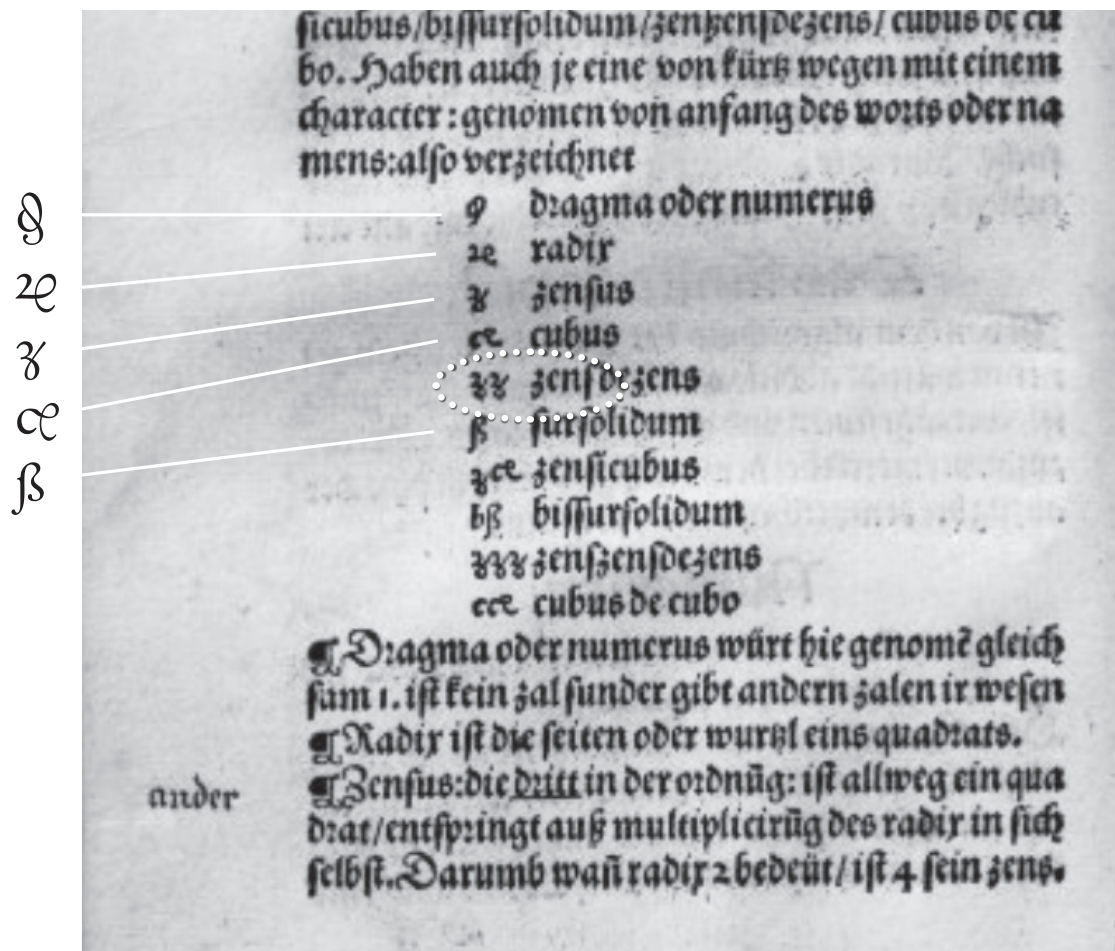 sicubus/bissursolidum/zenszensdezens/cubus de cu
bo. Haben auch je eine von kürtz wegen mit einem
character: genomen von anfang des worts oder na
mens: also verzeichnet
dragma oder numerus
radix
zensus
cubus
zensdezens
ß sursolidum
zensicubus
bß bissursolidum
zenszensdezens
cubus de cubo
¶ Dragma oder numerus würt hie genomẽ gleich
sam 1. ist kein zal sunder gibt andern zalen ir wesen
¶ Radix ist die seiten oder wurtzl eins quadrats.
¶ Zensus: die dritt in der ordnũg: ist allweg ein qua
ander
drat/entspringt auß multiplicirũg des radix in sich
selbst. Darumb wañ radix 2 bedeüt/ist 4 sein zens.
ß